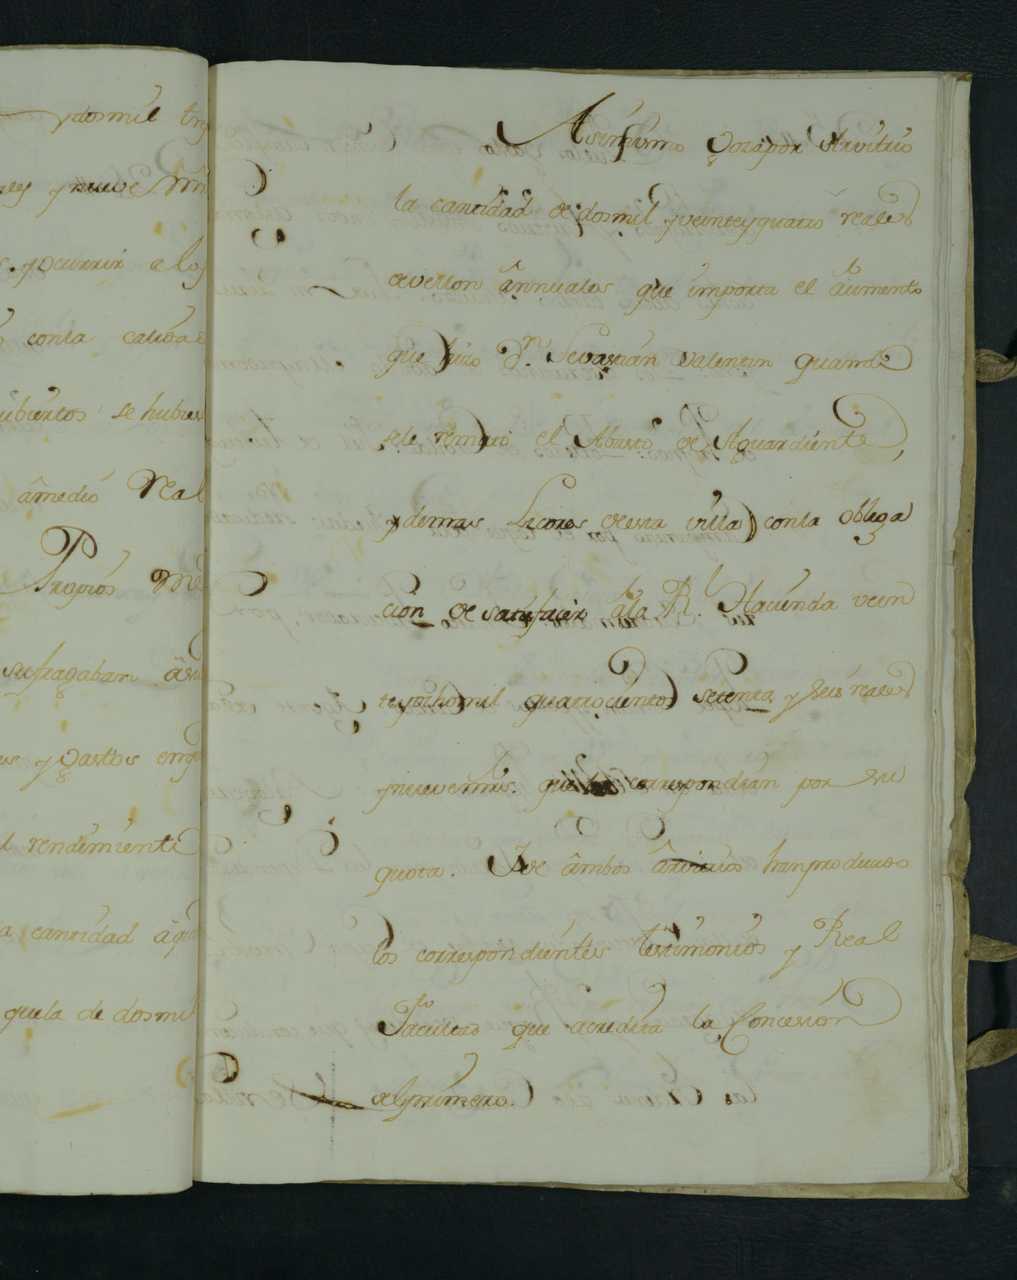 y dos mil
y nueve
y ocurrir a los
conla
ubiertos se hubies
âmedio Real
Propios
sufragaban
y Gastos
rendimiento
cantidad aque
quela de dos mil
Asimismo Goza por Arvitrio
la cantidad de dos mil y veinte y quatro reales
de vellon ânnuales que importa el aumento
que hizo Dn. Sevastian Valentin quando
sele remató el Abasto de Aguardiente,
y demas Licores de esta villa conla obliga
cion de satisfacer âla Rl. Hacienda vein
te yocho mil quatrocientos setenta y seis reales
y nueve mrs. que correspondian por su
quota. Y de âmbos ârvitrios han producido
los correspondientes testimonios y Real
Facultad que acredita la Concesion
del primero.